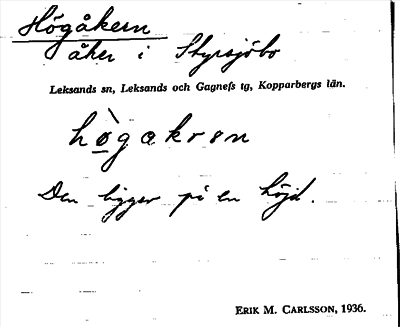 Högåkern
åker i Styrsjöbo
Leksands sn, Leksands och Gagnefs tg, Kopparbergs län.
hø̲̀gakren
Den ligger på en höjd.
ERIK M. CARLSSON, 1936.